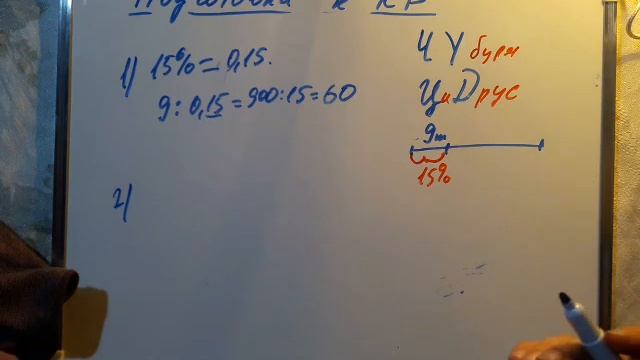 Подготовка к КР
1) 15% = 0,15.
9 : 0,15 = 900 : 15 = 60
2)
Ч У буря
Ци Друс
9т
15%